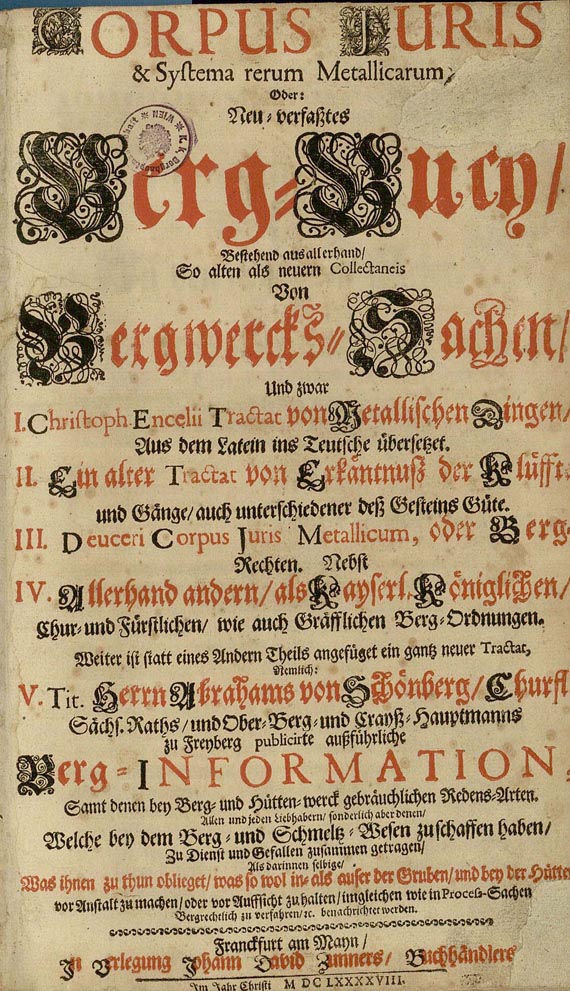 CORPUS JURIS
& Systema rerum Metallicarum,
Oder:
Neu-verfaßtes
Berg-Buch/
Bestehend aus allerhand/
So alten als neuern Collectaneis
Von
Bergwercks-Sachen/
Und zwar
I. Christoph Encelii Tractat von Metallischen Dingen/
Aus dem Latein ins Teutsche übersetzet.
II. Ein alter Tractat von Erkäntnuß der Klüfft-
und Gänge/ auch unterschiedener deß Gesteins Güte.
III. Deuceri Corpus Juris Metallicum, oder Berg-
Rechten. Nebst
IV. Allerhand andern/ als Kayserl. Königlichen/
Chur- und Fürstlichen/ wie auch Gräfflichen Berg-Ordnungen.
Weiter ist statt eines Andern Theils angefüget ein gantz neuer Tractat,
Nemlich:
V. Tit. Herrn Abrahams von Schönberg/ Churfl.
Sächs. Raths/ und Ober-Berg- und Crayß-Hauptmanns
zu Freyberg publicirte außführliche
Berg-INFORMATION,
Samt denen bey Berg- und Hütten-werck gebräuchlichen Redens-Arten.
Allen und jeden Liebhabern/ sonderlich aber denen/
Welche bey dem Berg- und Schmeltz-Wesen zu schaffen haben/
Zu Dienst und Gefallen zusammen getragen/
Als darinnen selbige/
Was ihnen zu thun oblieget/ was so wol in- als auser der Gruben/ und bey der Hütten
vor Anstalt zu machen/ oder vor Auffsicht zu halten/ imgleichen wie in Process-Sachen
Bergrechtlich zu verfahren/ ꝛc. benachrichtet werden.
Franckfurt am Mayn/
In Verlegung Johann David Zunners/ Buchhändlers
Im Jahr Christi M DC LXXXXVIII.